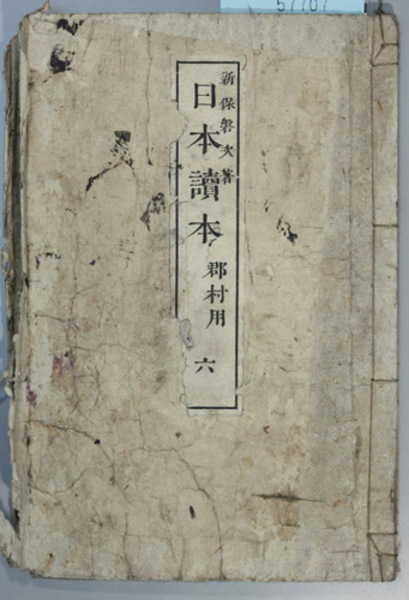 57767
新保磐次著
日本讀本 郡村用 六